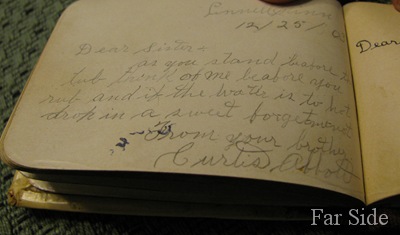 12/25/
Dear Sister
as you stand before
tub think of me before you
rub and if the water is to hot
drop in a sweet forget me not
From your brother
Curtis Abbott
Dear
Far Side